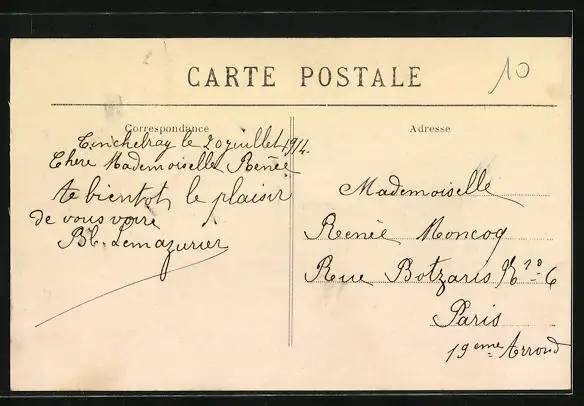 CARTE POSTALE
10
Correspondance
Tinchebray le 20 juillet 1914.
Chere Mademoiselle Renée
a bientot, le plaisir
de vous voire
Bl. Lemazurier
Adresse
Mademoiselle
Renée Moncoq
Rue Botzaris No 6
Paris
19eme Arrond